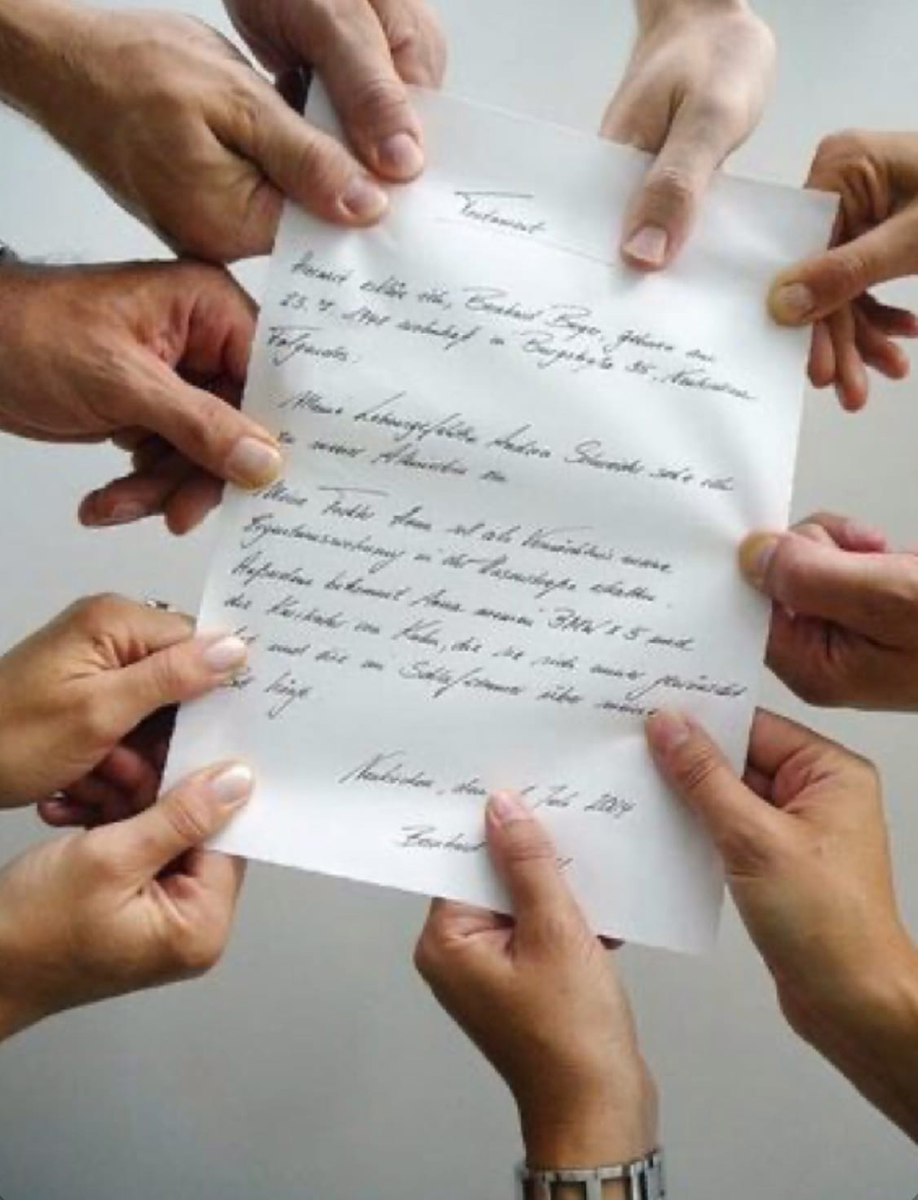 Testament
Hiermit erkläre ich, Bernhard Beyer, geboren am
23. 4. wohnhaft in 35, Neukirchen
Folgendes:
Meine Lebensgefährtin Andrea Schneider setze ich
zu meiner Alleinerbin ein
Meine Tochter Anna soll als Vermächtnis meine
Eigentumswohnung in der erhalten.
Außerdem bekommt Anna meinen BMW X5 und
die von Kahn, die sie sich immer gewünscht
hat und die im Schlafzimmer über meinem
Bett hängt
Neukirchen, den Juli 2004
Bernhard